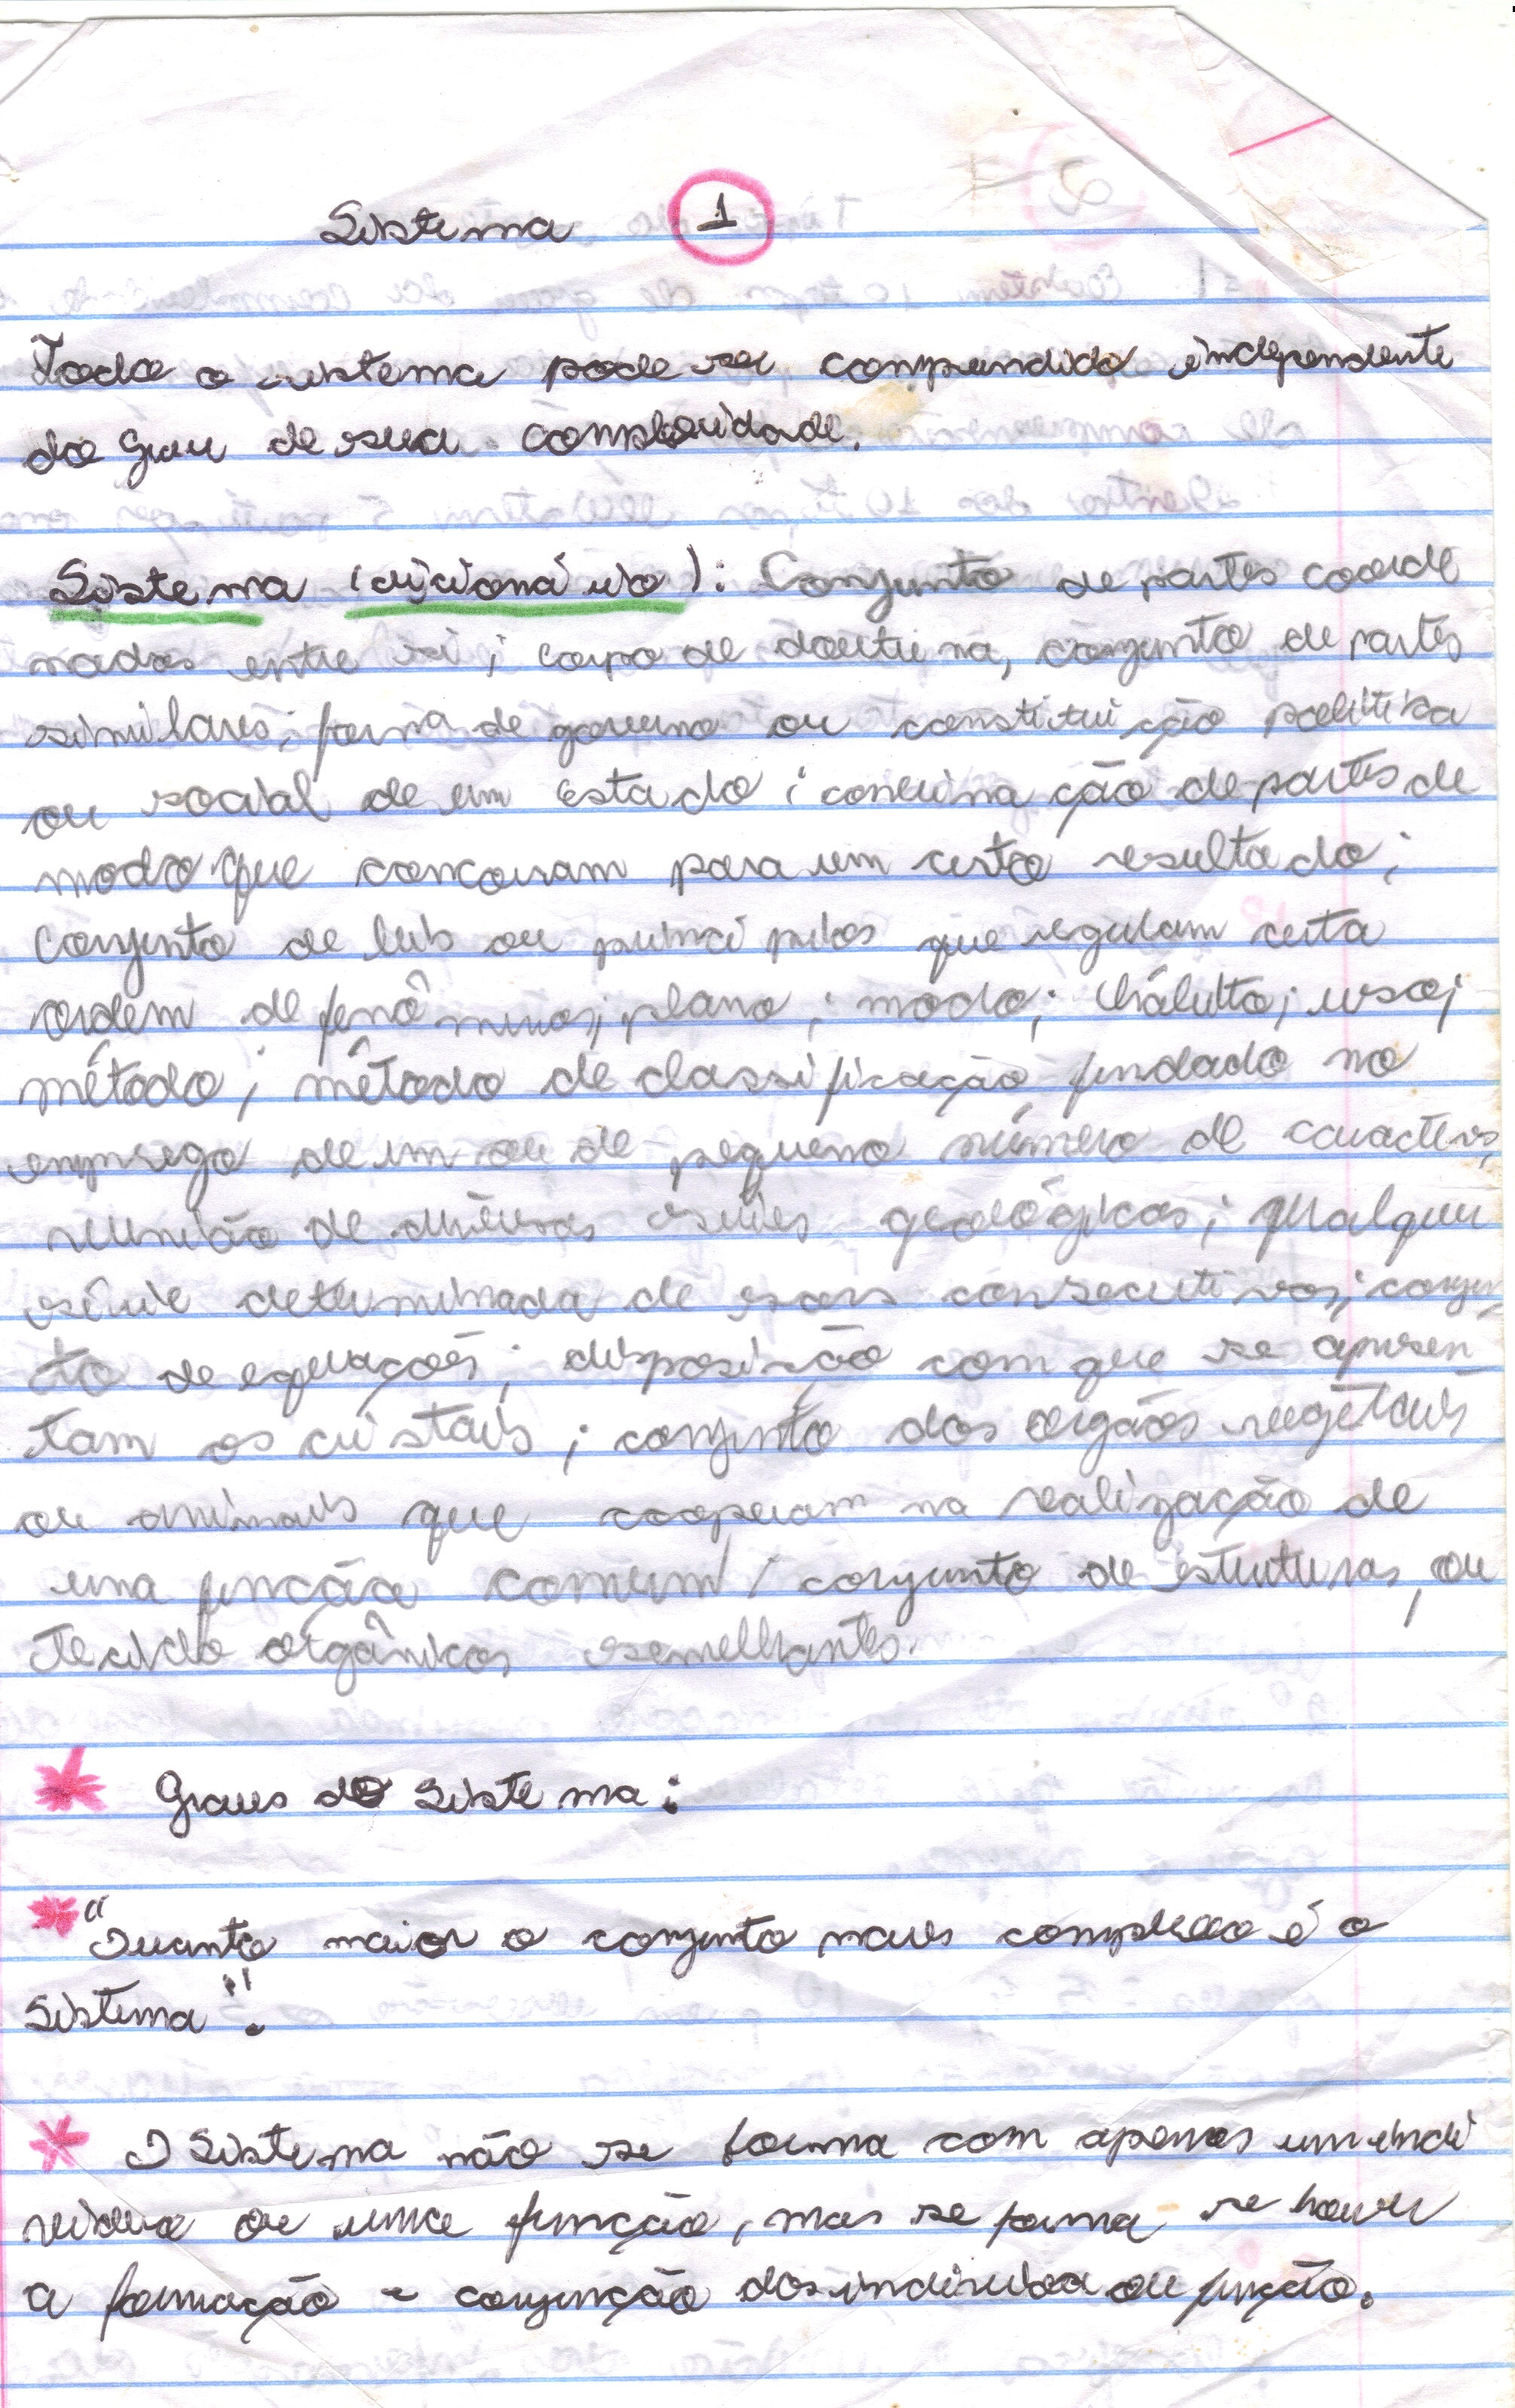 Sistema 1
Todo o sistema pode ser comprendido independente
do grau de sua complexidade.
Sistema (dicionário): Conjunto de partes coorde
nadas entre si; corpo de doutrina, conjunto de partes
similares; forma de governo ou constituição politica
ou social de um Estado; combinação de partes de
modo que concorram para um certo resultado;
Conjunto de leis ou principios que regulam certa
ordem de fenômenos; plano; modo; hábito; uso;
método; método de classificação fundado no
emprego de um ou de pequeno número de caracteres,
reunião de diversas séries geológicas; qualquer
série determinada de sons consecutivos; conjun
to de equações; disposição com que se apresen
tam os cristais; conjunto dos orgãos vegetais
ou animais que cooperam na realização de
uma função comum; conjunto de estruturas, ou
tecido orgânicos semelhantes.
Graus do Sistema:
"Quanto maior o conjunto mais complexo é o
Sistema".
O Sistema não se forma com apenas um indi
viduo ou uma função, mas se forma se houver
a formação e conjunção dos individuos ou função.